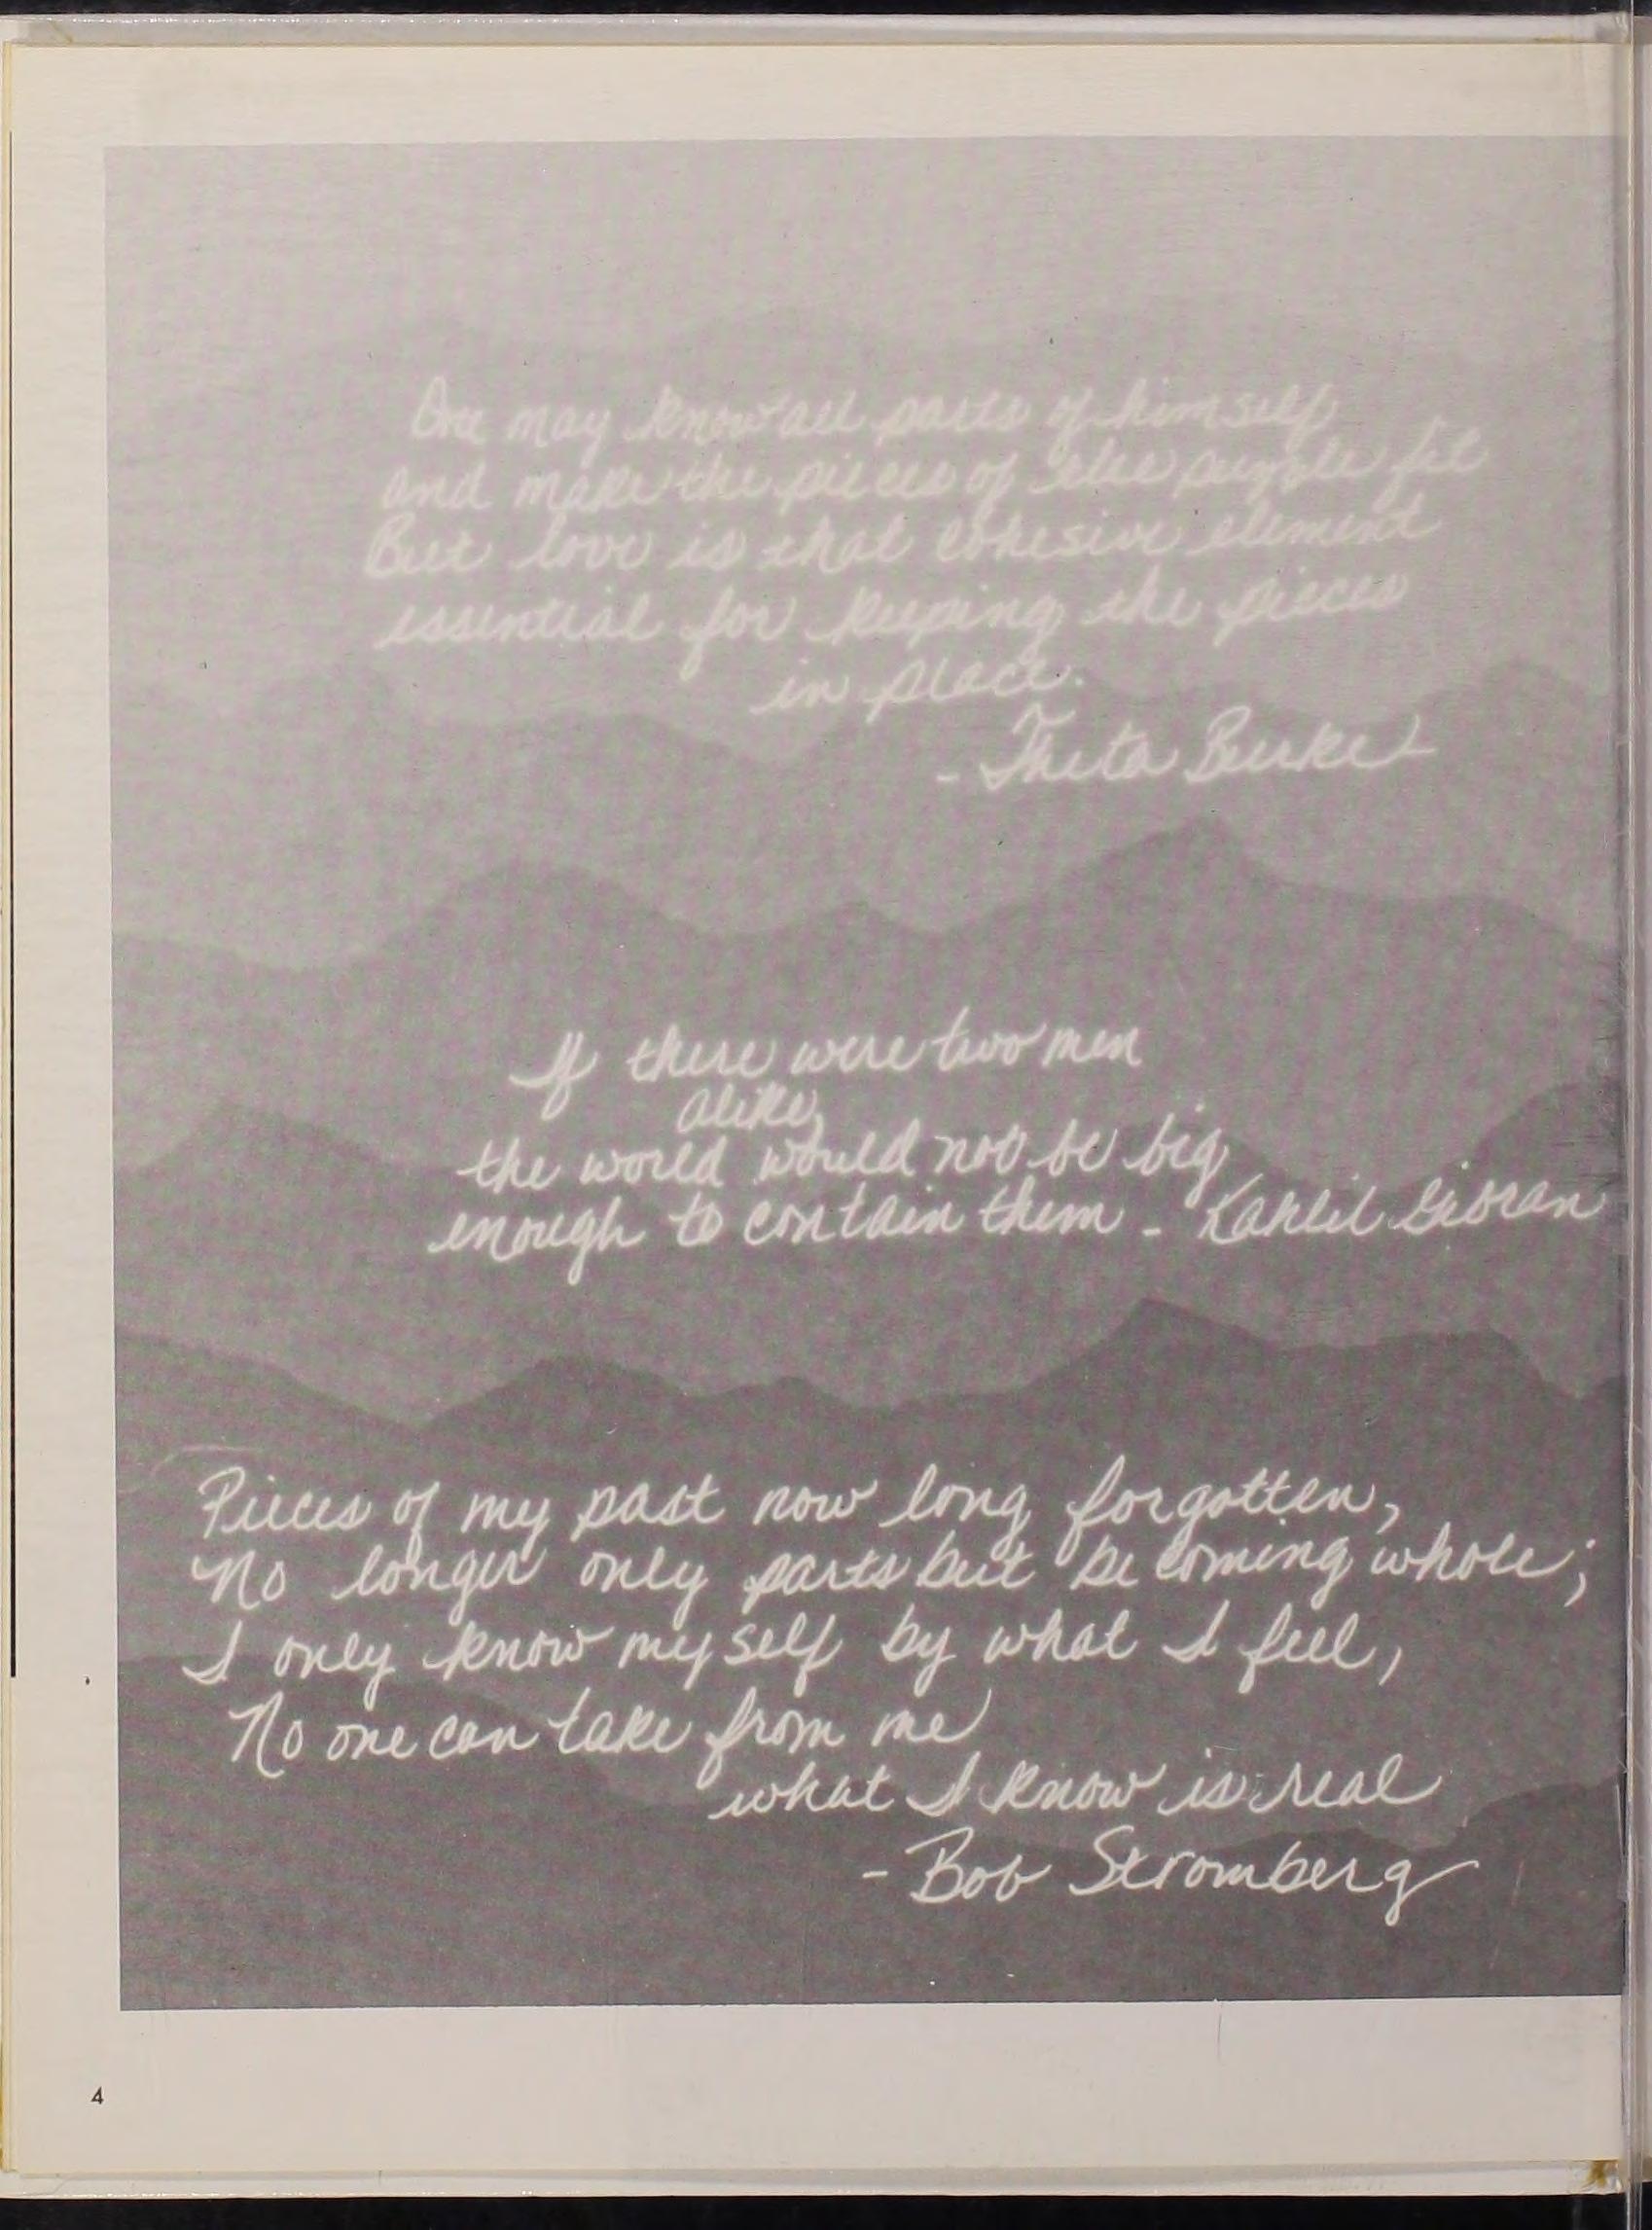 One may know all parts of himself
and make the pieces of the puzzle fit
But love is that cohesive element
essential for keeping the pieces
in place.
- Theta Burke
If there were two men
alike,
the world would not be big
enough to contain them - Kahlil Gibran
Pieces of my past now long forgotten,
No longer only parts but becoming whole;
I only know myself by what I feel,
No one can take from me
what I know is real
- Bob Stromberg
4